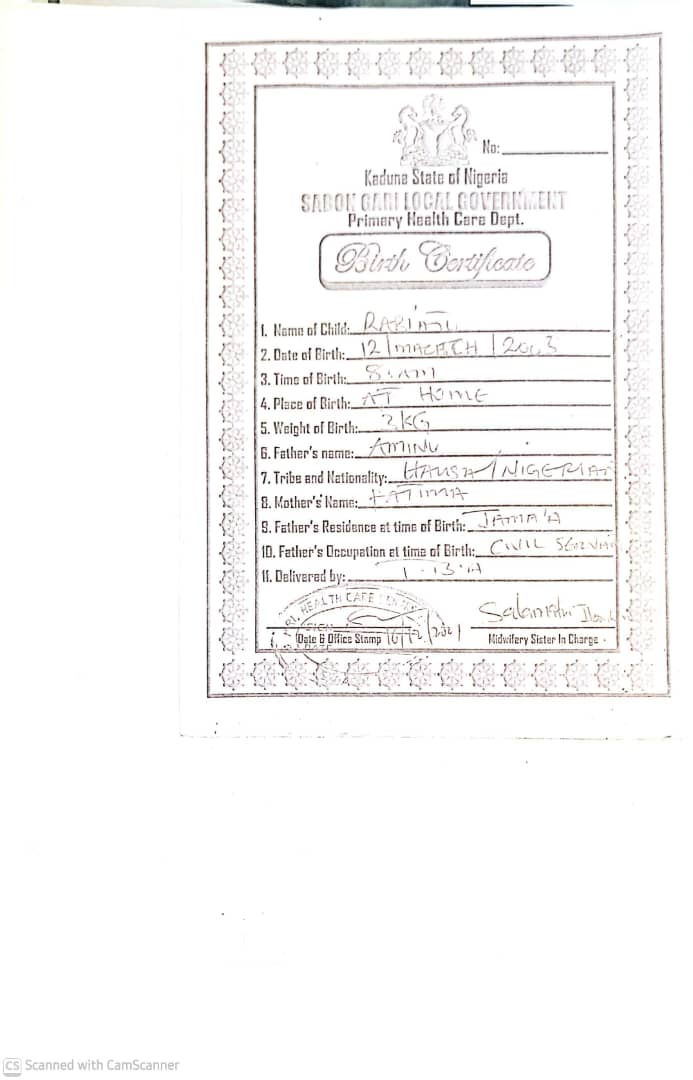 No:
Kaduna State of Nigeria
SABON GARI LOCAL GOVERNMENT
Primary Health Care Dept.
Birth Certificate
1. Name of Child: RABIATU
2. Date of Birth: 12 | MARCH | 2003
3. Time of Birth: AM
4. Place of Birth: AT HOME
5. Weight of Birth: KG
6. Father's name: AMINU
7. Tribe and Nationality: HAUSA / NIGERIAN
8. Mother's Name: FATIMA
9. Father's Residence at time of Birth: JAMA'A
10. Father's Occupation at time of Birth: CIVIL SERVAN
11. Delivered by:
HEALTH CARE
SIGN
DATE
Date & Office Stamp 16/12/2021
Midwifery Sister In Charge
CS Scanned with CamScanner